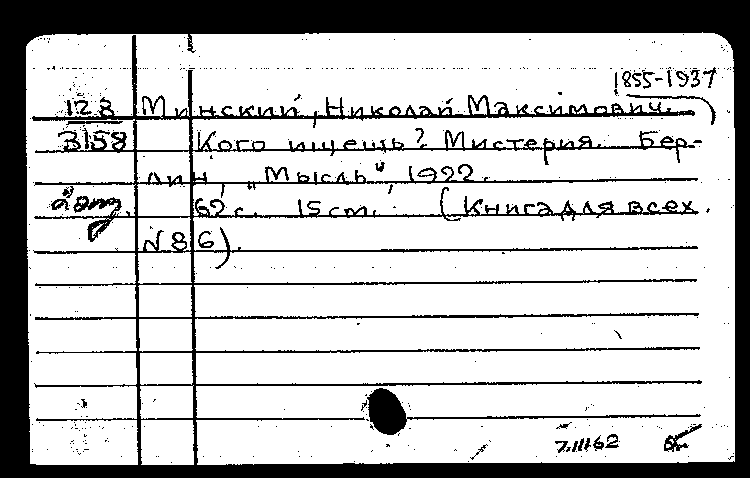 1855-1937
128 Минский, Николай Максимович.
3158 Кого ищешь? Мистерия. Бер-
лин, „Мысль“, 1922.
62 с. 15 cm. (Книга для всех.
N 86).
7.III 62